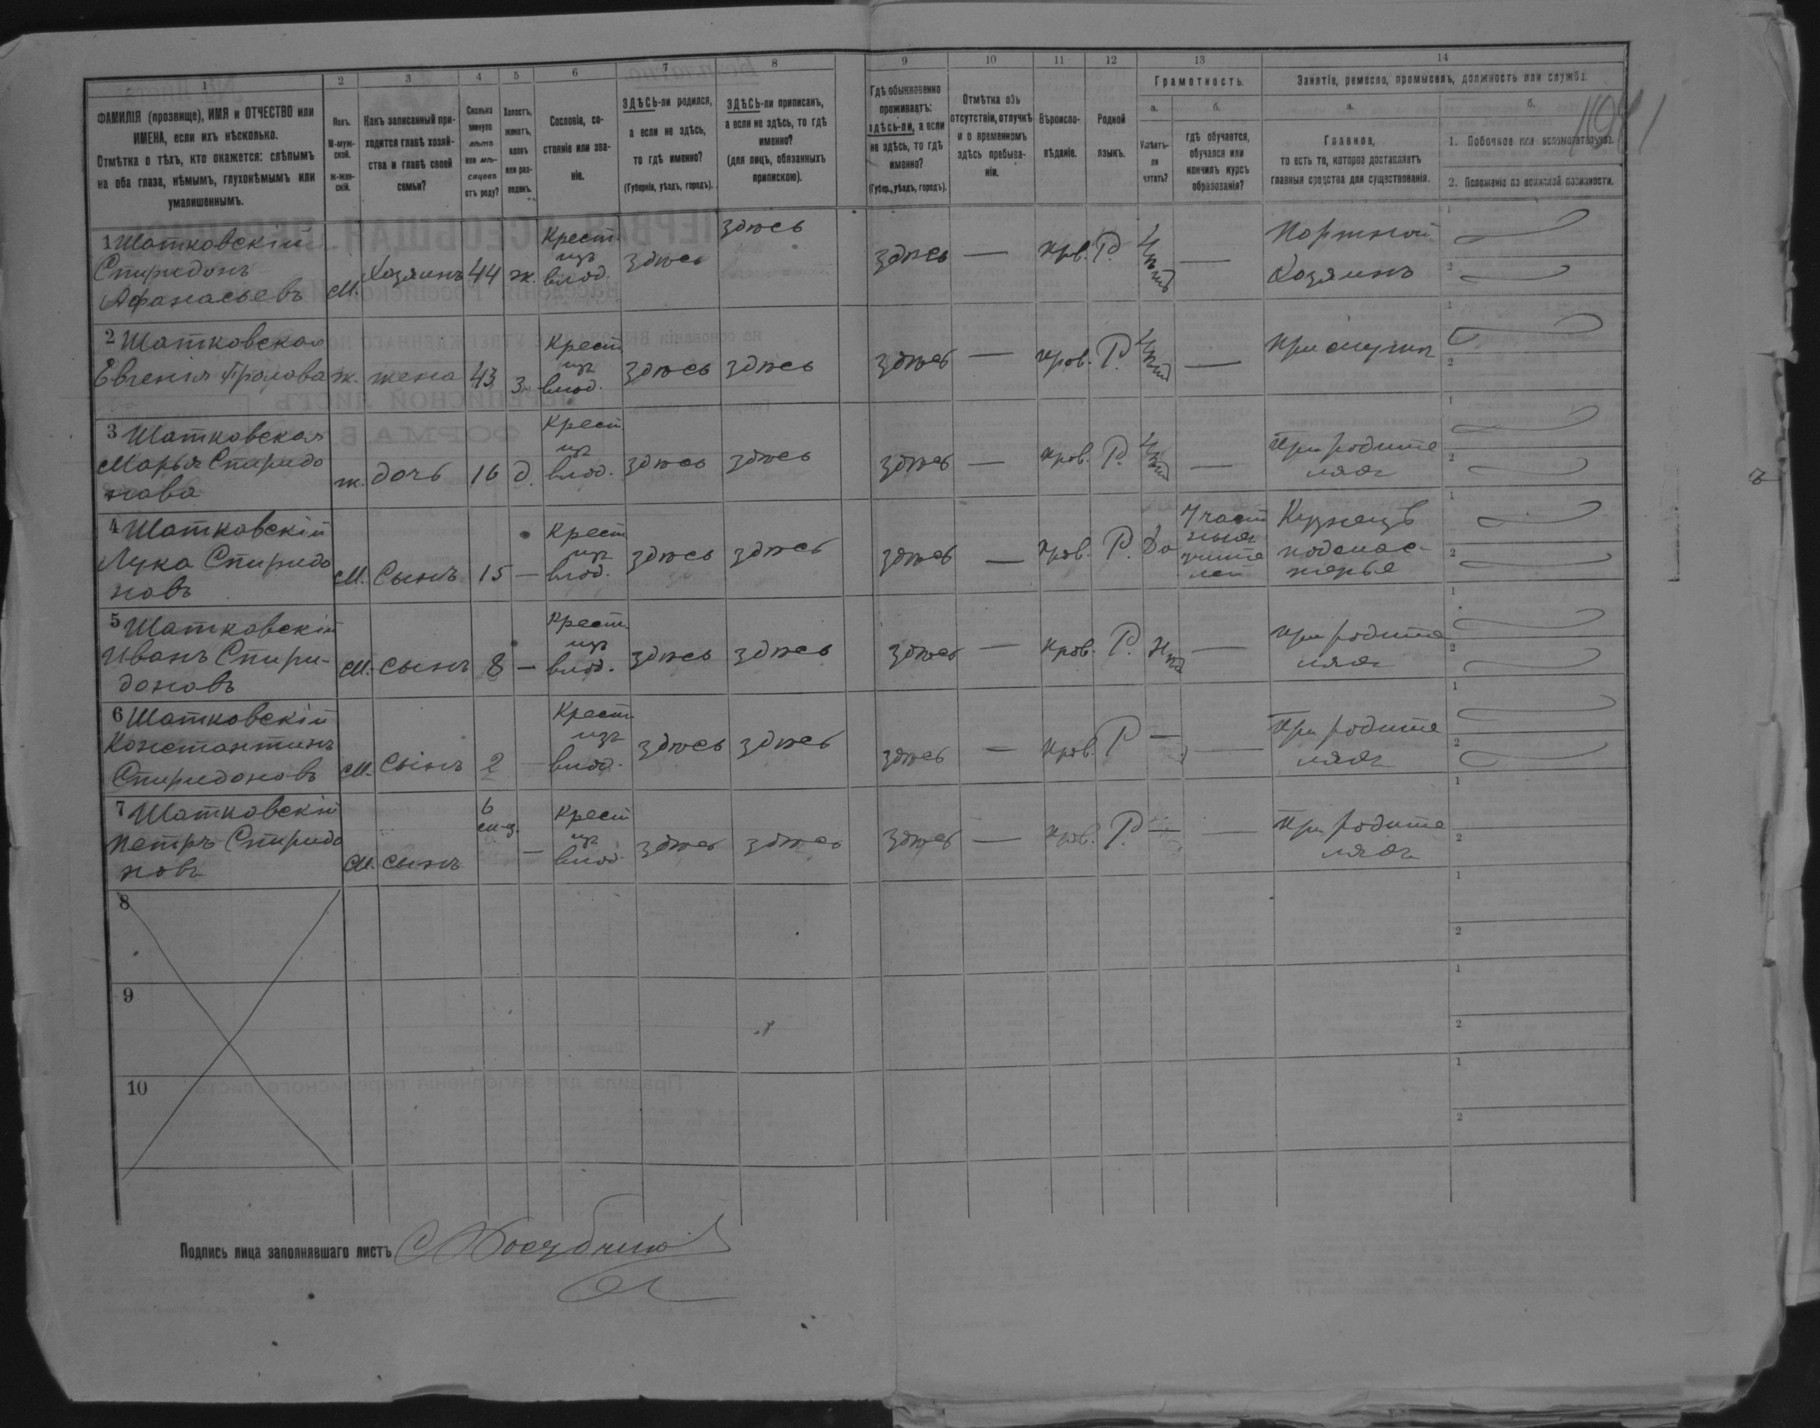 1 2 3 4 5 6 7 8 9 10 11 12 13 14
ФАМИЛІЯ (прозвище), ИМЯ и ОТЧЕСТВО или
ИМЕНА, если ихъ нѣсколько.
Отмѣтка о тѣхъ, кто окажется: слѣпымъ
на оба глаза, нѣмымъ, глухонѣмымъ или
умалишеннымъ.
Полъ.
М-муж-
ской.
ж-жен-
скій.
Какъ записанный при-
ходится главѣ хозяй-
ства и главѣ своей
семьи?
Сколько
минуло
лѣтъ
или мѣ-
сяцевъ
отъ роду?
Холостъ,
женатъ,
вдовъ
или раз-
веденъ.
Сословіе, со-
стояніе или зва-
ніе.
ЗДѢСЬ-ли родился,
а если не здѣсь,
то гдѣ именно?
(Губернія, уѣздъ, городъ).
ЗДѢСЬ-ли приписанъ,
а если не здѣсь, то гдѣ
именно?
(для лицъ, обязанныхъ
припискою).
Гдѣ обыкновенно
проживаетъ:
здѣсь-ли, а если
не здѣсь, то гдѣ
именно?
(Губер., уѣздъ, городъ).
Отмѣтка объ
отсутствіи, отлучкѣ
и о временномъ
здѣсь пребыва-
ніи.
Вѣроиспо-
вѣданіе.
Родной
языкъ.
Грамотность.
а.
Умѣетъ-
ли
читать?
б.
гдѣ обучается,
обучался или
кончилъ курсъ
образованія?
Занятіе, ремесло, промыселъ, должность или служба.
а.
Главное,
то есть то, которое доставляетъ
главныя средства для существованія.
б.
1. Побочное или вспомогательное.
2. Положеніе по воинской повинности.
1 Шатковскій
Спиридонъ
Афанасьевъ
М. Хозяинъ 44 ж.
Крест.
изъ
влад.
здѣсь здѣсь здѣсь — прав. Р. —
Портной
Хозяинъ
2 Шатковская
Евгенія Фролова ж. жена 43 з.
Крест
изъ
влад.
здѣсь здѣсь здѣсь — прав. Р. —
При мужи
3 Шатковская
Марья Спиридо
нова
ж. дочь 16 д.
Крест
изъ
влад.
здѣсь здѣсь здѣсь — прав. Р. —
При родите
ляхъ
4 Шатковскій
Лука Спиридо
новъ
М. Сынъ 15 —
Крест
изъ
влад.
здѣсь здѣсь здѣсь — прав. Р. Да
У част
ныхъ
учите
лей
Кузнецъ
подмас-
терье
5 Шатковскій
Иванъ Спири-
доновъ
М. сынъ 8 —
Крест.
изъ
влад.
здѣсь здѣсь здѣсь — прав. Р. —
При родите
ляхъ
6 Шатковскій
Константинъ
Спиридоновъ
М. Сынъ 2 —
Крест
изъ
влад.
здѣсь здѣсь здѣсь — прав. Р — —
При родите
ляхъ
7 Шатковскій
Петръ Спиридо
новъ
М. сынъ
6
м-ц.
—
Крест
изъ
влад.
здѣсь здѣсь здѣсь — прав. Р. — —
При родите
ляхъ
8
9
10
Подпись лица заполнявшаго листъ